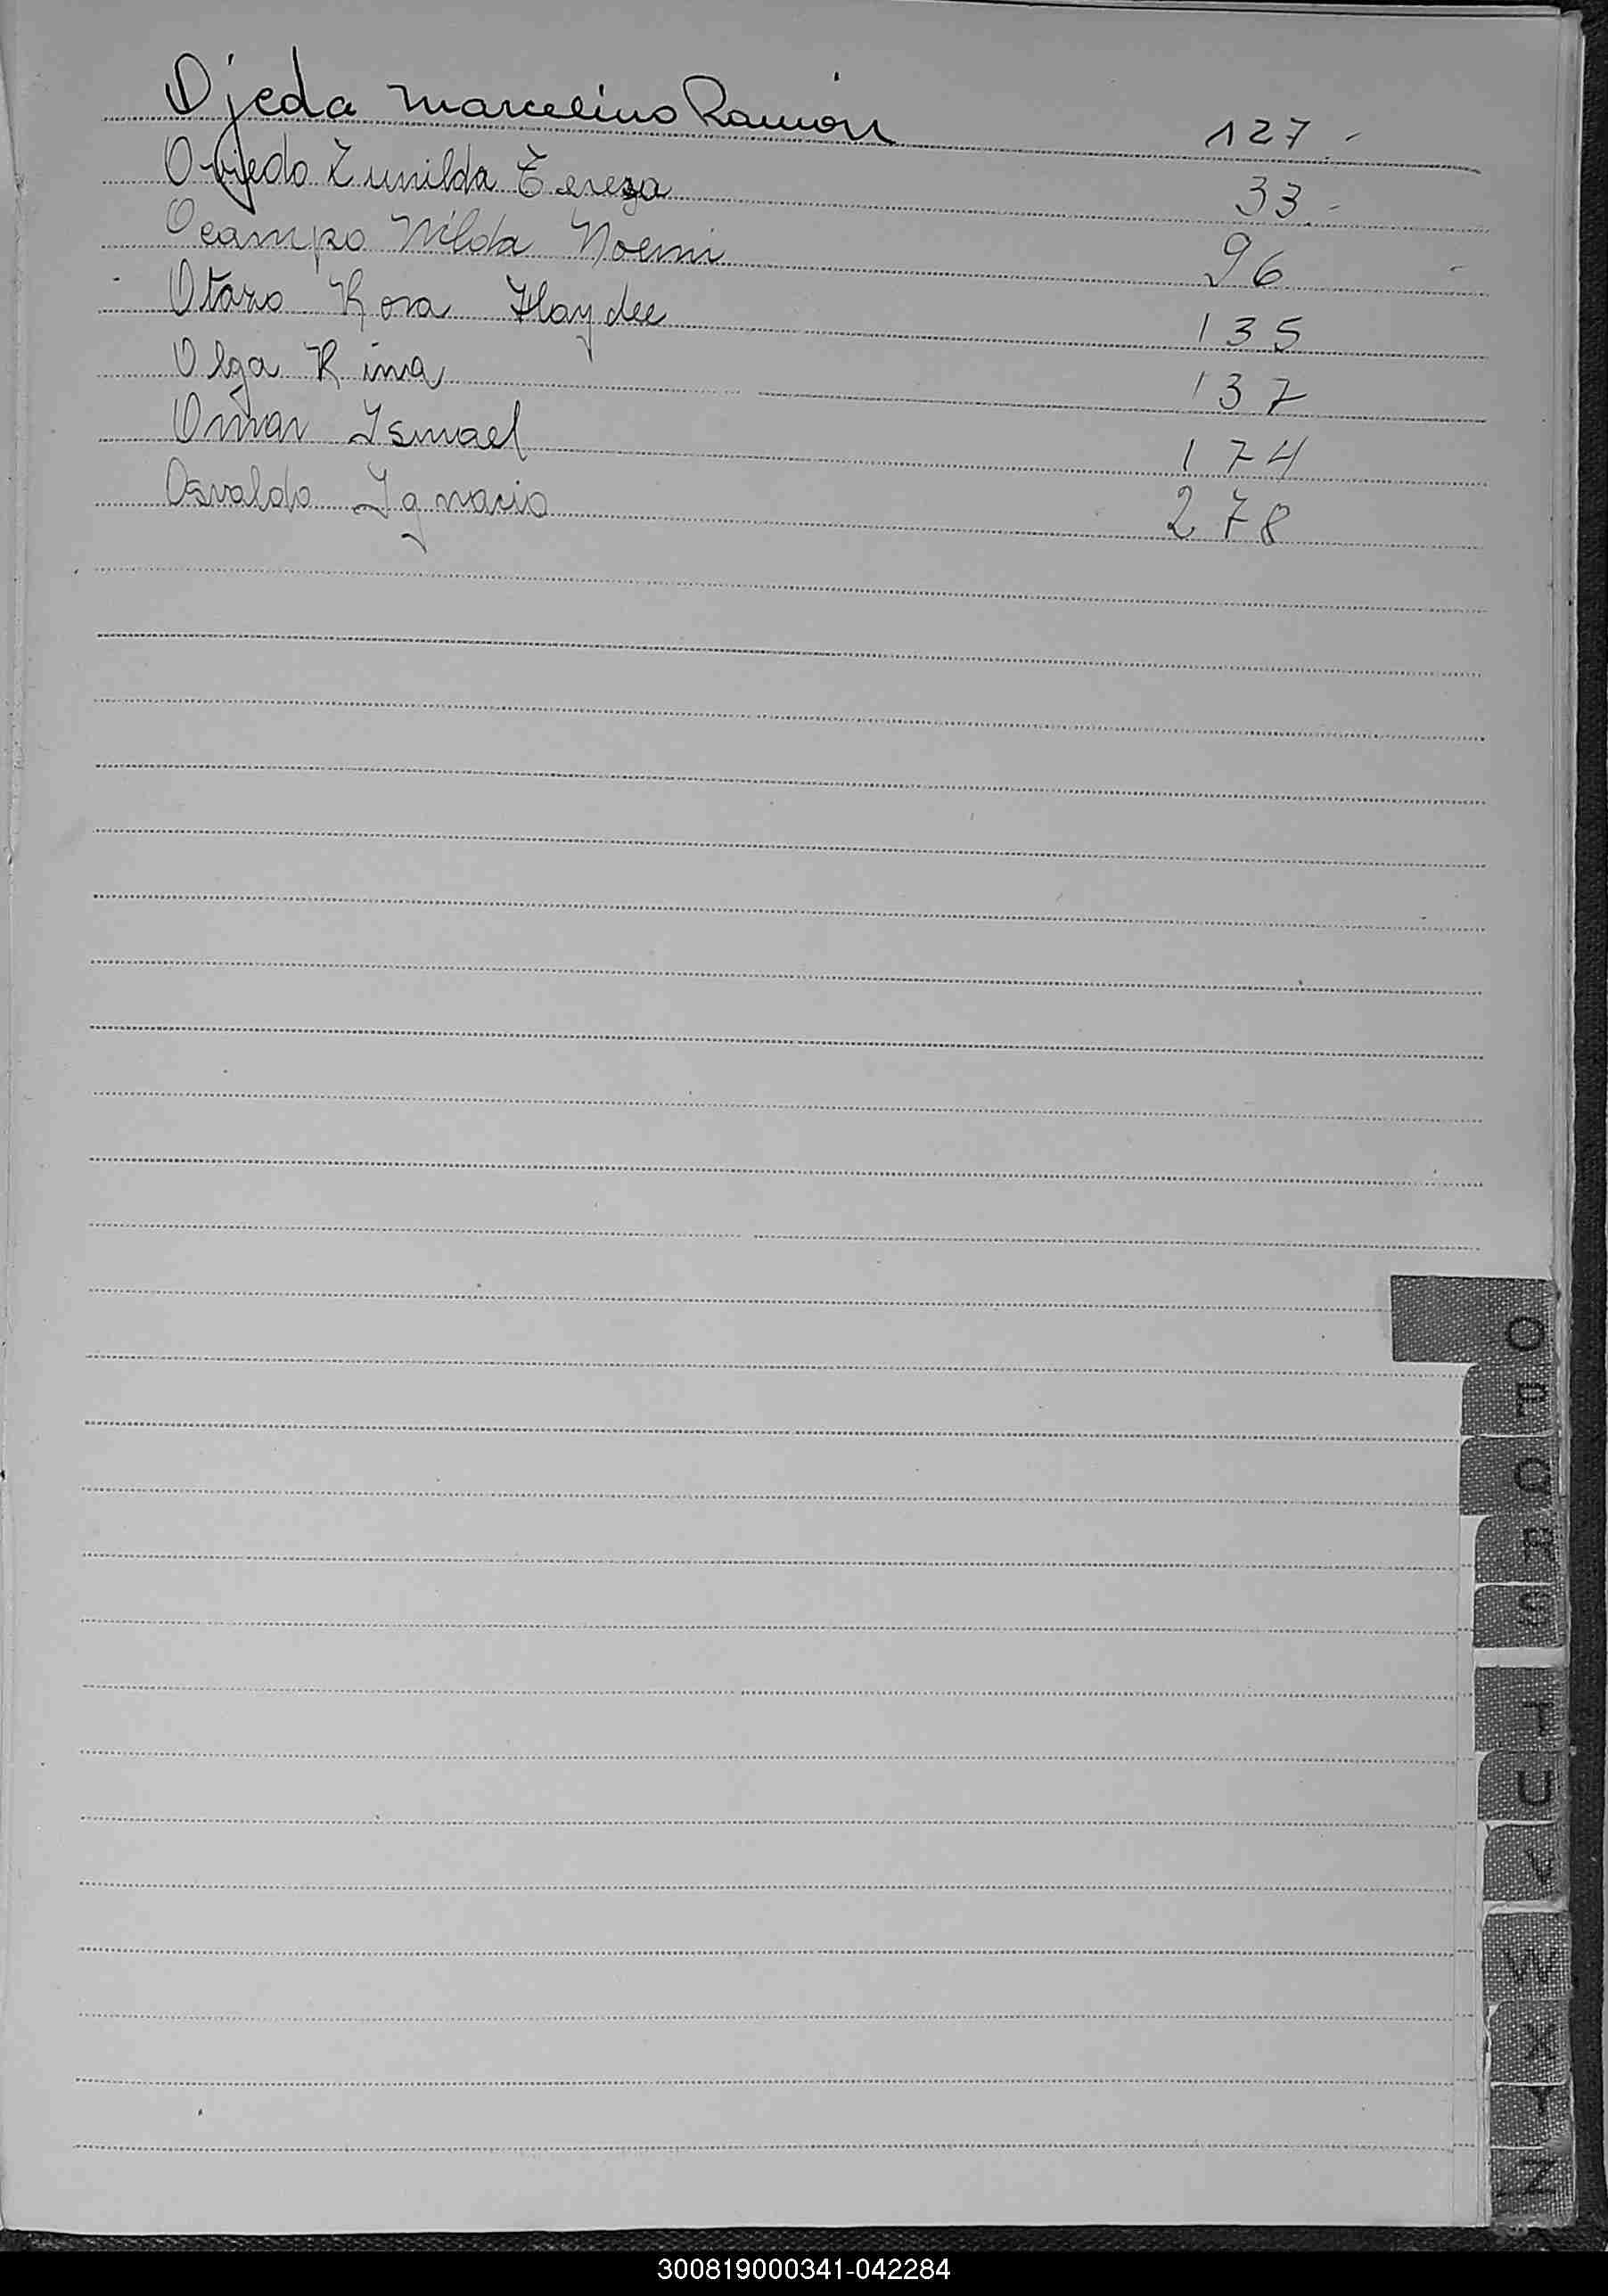 Ojeda Marcelino Ramón 127.-
Oviedo Zunilda Tereza 33.-
Ocampo Nilda Noemi 96 -
Otazo Rosa Haydee 135
Olga Rina 137
Omar Ismael 174
Osvaldo Ignacio 278
O
P
Q
R
S
T
U
V
W
X
Y
Z
300819000341-042284